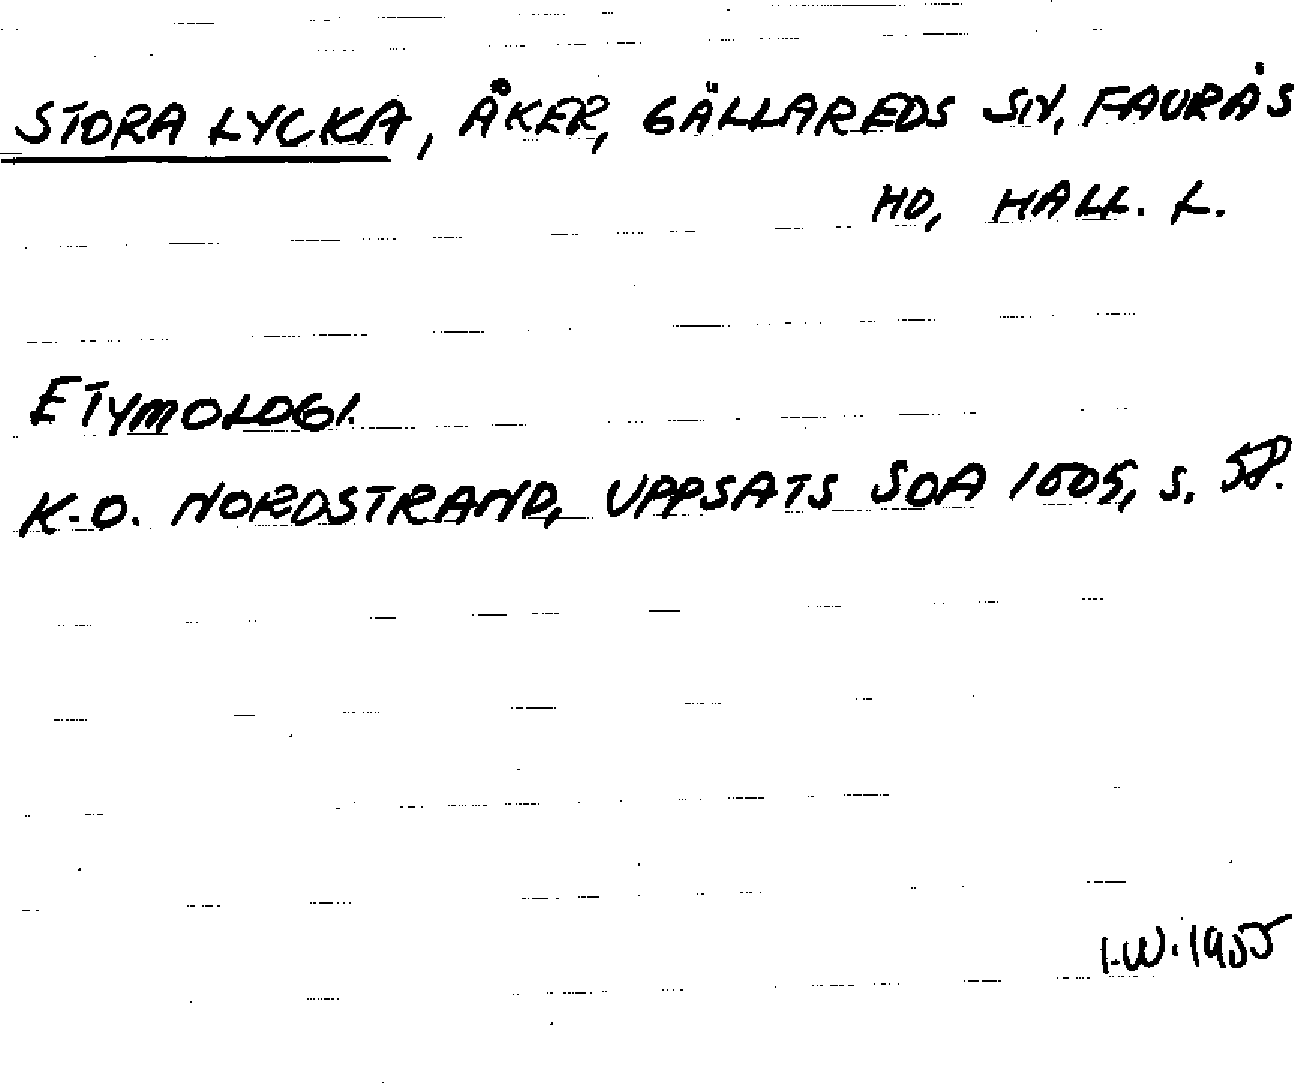 STORA LYCKA, ÅKER, GÄLLAREDS SN, FAURÅS
HD, HALL. L.
ETYMOLOGI.
K.O. NORDSTRAND, UPPSATS SOA 1005, S. 58.
I.W. 1955